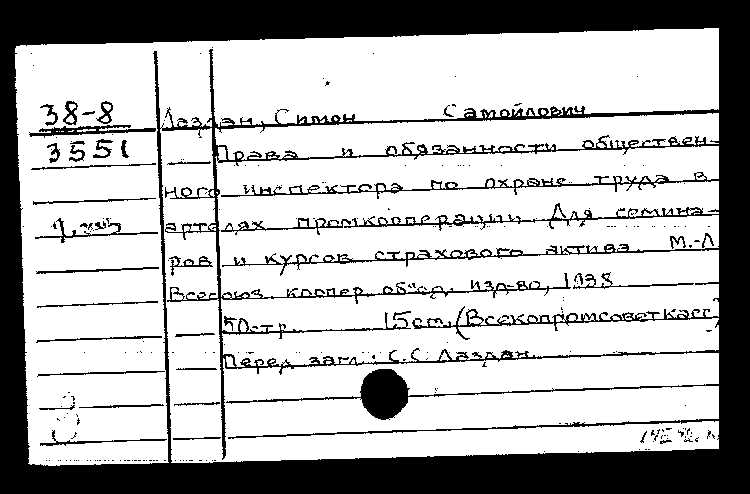 38-8
3551
Лаздан, Симон Самойлович
Права и обязанности обществен-
ного инспектора по охране труда в
артелях промкооперации. Для семина-
ров и курсов страхового актива. М.-Л
Всесоюз. коопер. об"ед. изд-во, 1938
50 стр. 15 cm. (Всекопромсоветкасс
Перед загл.: С.С. Лаздан.